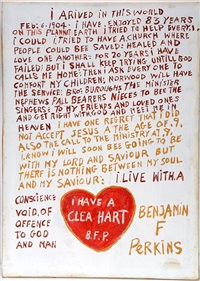 I ARIVED IN THIS WORLD
FEB; 6. 1904. I HAVE, ENJOYED 83 YEARS
ON THIS PLANNT EARTH I TRIED TO HELP EVERY.
I COULD I TRIED TO HAVE A CHURCH WHERE
PEOPLE COULD BEE SAVED: HEALED AND
LOVE ONE ANOTHER: FOR 20 YEARS: I HAVE
FAILED: BUT I SHALL KEEP TRYING UNTILL GOD
CALLS ME HOME: THEN I ASK EVERY ONE TO
COMFORT MY CHILDREN; NORWOOD WILL HAVE
THE SERVICE: BRO: BURROUGHS THE MINISTER
NEPHEWS PALL BEARERS NIECES TO BEE THE
SINGERS: TO MY FRIENDS AND LOVED ONES
AND GET RIGHT WITH GOD AND MEET ME IN
HEAVEN I HAVE ONE REGRET THAT I DID
NOT ACCEPT JESUS A THE AGE OF 9,
ALSO THE CALL TO THE MINISTRY AT 9.
I KNOW I WILL SOON BEE GOING TO BE
WITH MY LORD AND SAVIOUR BUT
THERE IS NOTHING BETWEEN MY SOUL
AND MY SAVIOUR: I LIVE WITH A
CONSCIENCE
VOID, OF
OFFENCE
TO GOD
AND MAN
I HAVE A
CLEA HART
B.F.P.
BENJAMIN
F
PERKINS